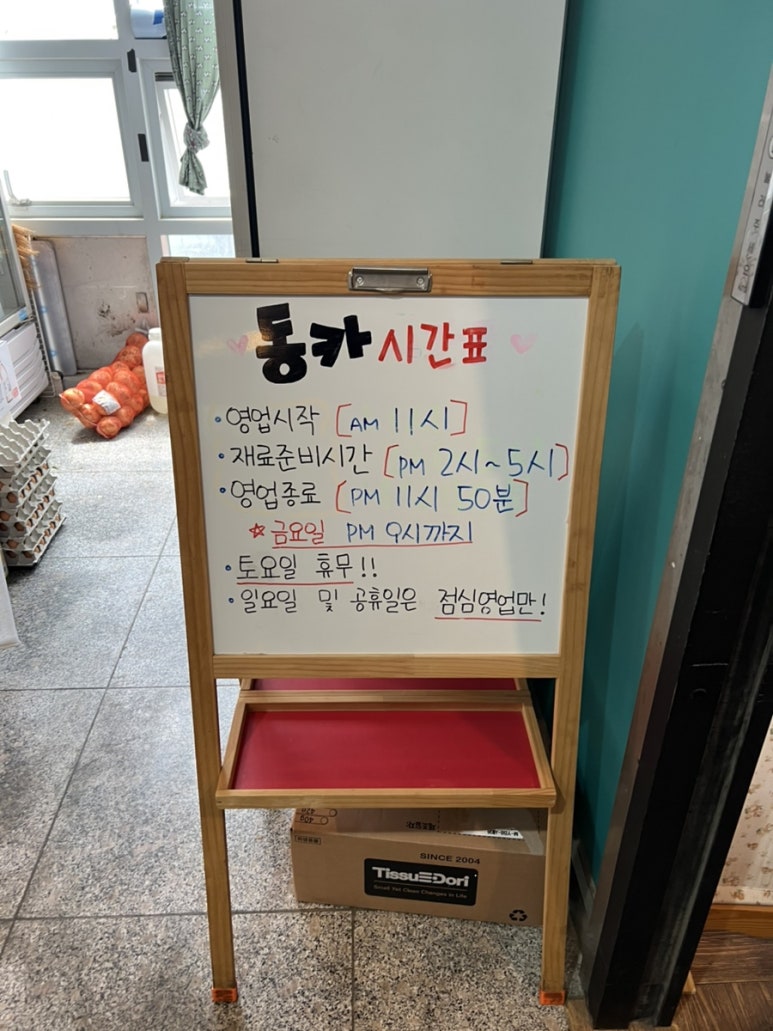 동카 시간표
· 영업시작 [AM 11시]
· 재료준비시간 [PM 2시~5시]
· 영업종료 [PM 11시 50분]
☆ 금요일 PM 9시까지
· 토요일 휴무!!
· 일요일 및 공휴일은 점심영업만!
SINCE 2004
TissueDori
Small Yet Clean Changes in Life